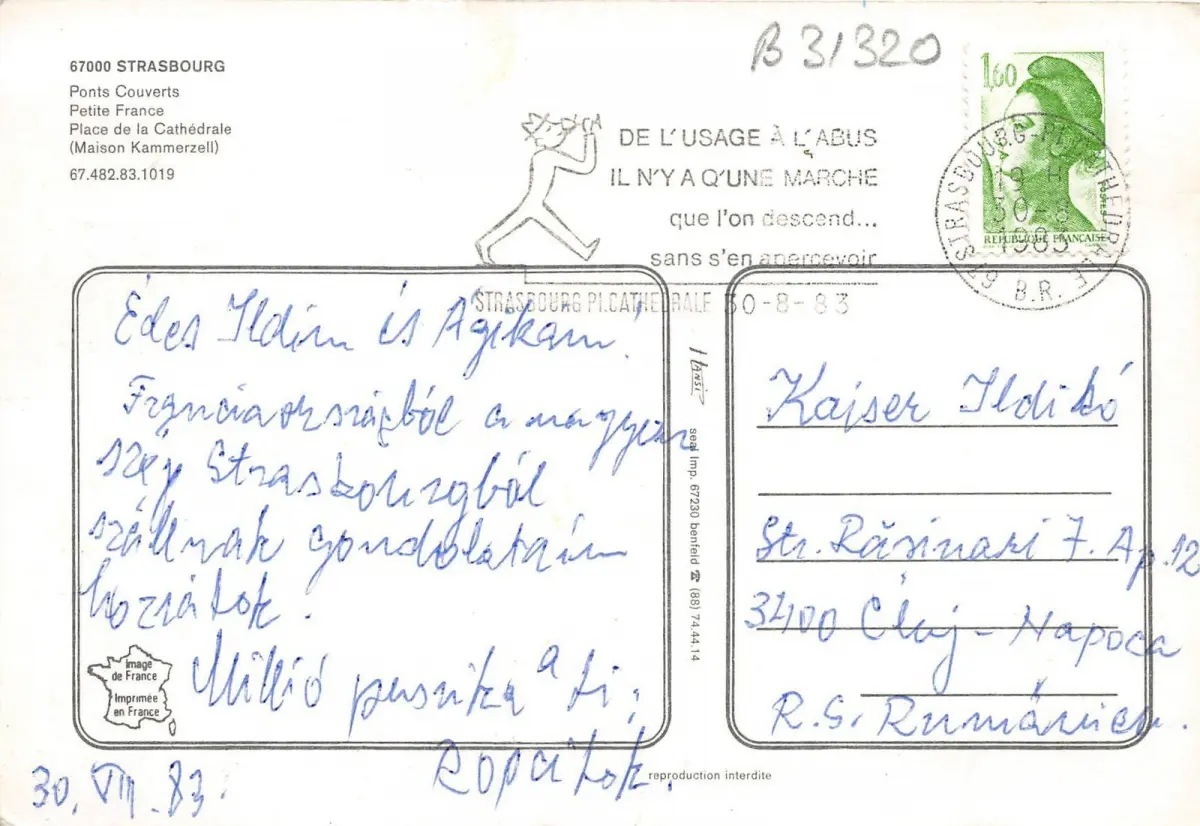 67000 STRASBOURG
Ponts Couverts
Petite France
Place de la Cathédrale
(Maison Kammerzell)
67.482.83.1019
B 31320
DE L'USAGE À L'ABUS
IL N'Y A Q'UNE MARCHE
que l'on descend...
sans s'en apercevoir
STRASBOURG PL.CATHEDRALE 30-8-83
1,60
POSTES
REPUBLIQUE FRANÇAISE
67 STRASBOURG-PL CATHEDRALE
19 H
30-8
1983
B.R.
Édes Ildim és Ágikám!
Franciaországból a nagyon
szép Strasbourgból
szállnak gondolataim
hozzátok.
Millió puszika a ti:
30. VIII. 83.
image
de France
Imprimée
en France
HANSI
seal Imp. 67230 benfeld ☎ (88) 74.44.14
reproduction interdite
Kajser Ildikó
Str. Răsinari 7. Ap. 12
3400 Cluj-Napoca
R.S. Rumánien.